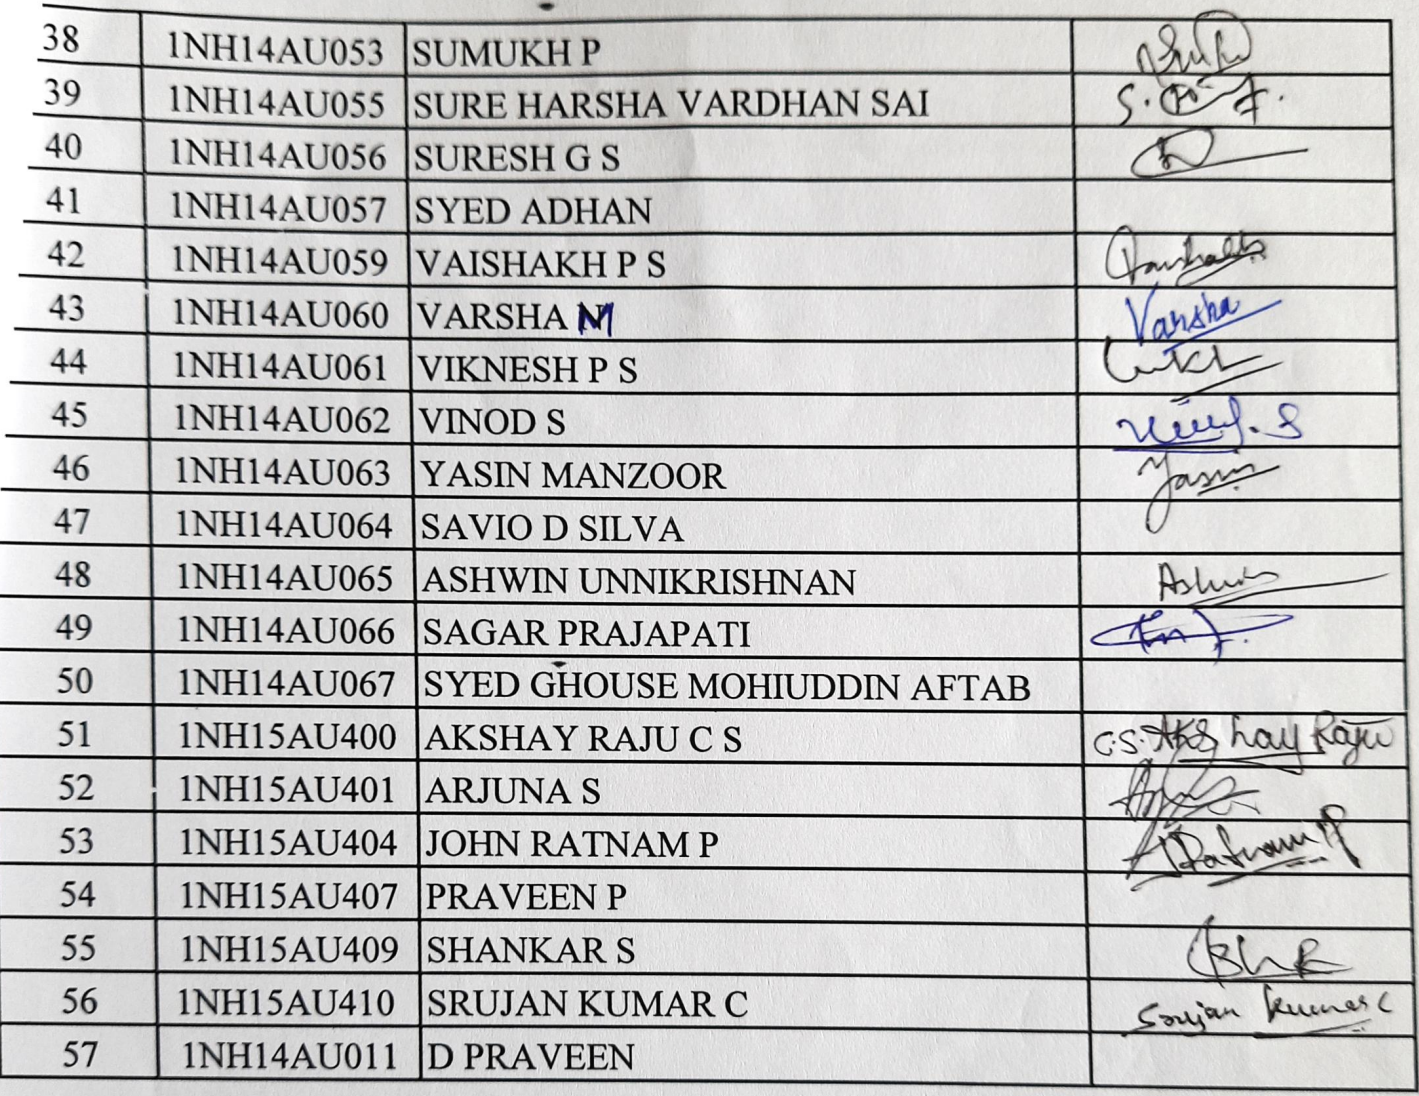 38 1NH14AU053 SUMUKH P
39 1NH14AU055 SURE HARSHA VARDHAN SAI
40 1NH14AU056 SURESH G S
41 1NH14AU057 SYED ADHAN
42 1NH14AU059 VAISHAKH P S
43 1NH14AU060 VARSHA M Varsha
44 1NH14AU061 VIKNESH P S
45 1NH14AU062 VINOD S
46 1NH14AU063 YASIN MANZOOR Yasin
47 1NH14AU064 SAVIO D SILVA
48 1NH14AU065 ASHWIN UNNIKRISHNAN
49 1NH14AU066 SAGAR PRAJAPATI
50 1NH14AU067 SYED GHOUSE MOHIUDDIN AFTAB
51 1NH15AU400 AKSHAY RAJU C S C.S. Akshay Raju
52 1NH15AU401 ARJUNA S
53 1NH15AU404 JOHN RATNAM P
54 1NH15AU407 PRAVEEN P
55 1NH15AU409 SHANKAR S
56 1NH15AU410 SRUJAN KUMAR C Srujan Kumar C
57 1NH14AU011 D PRAVEEN